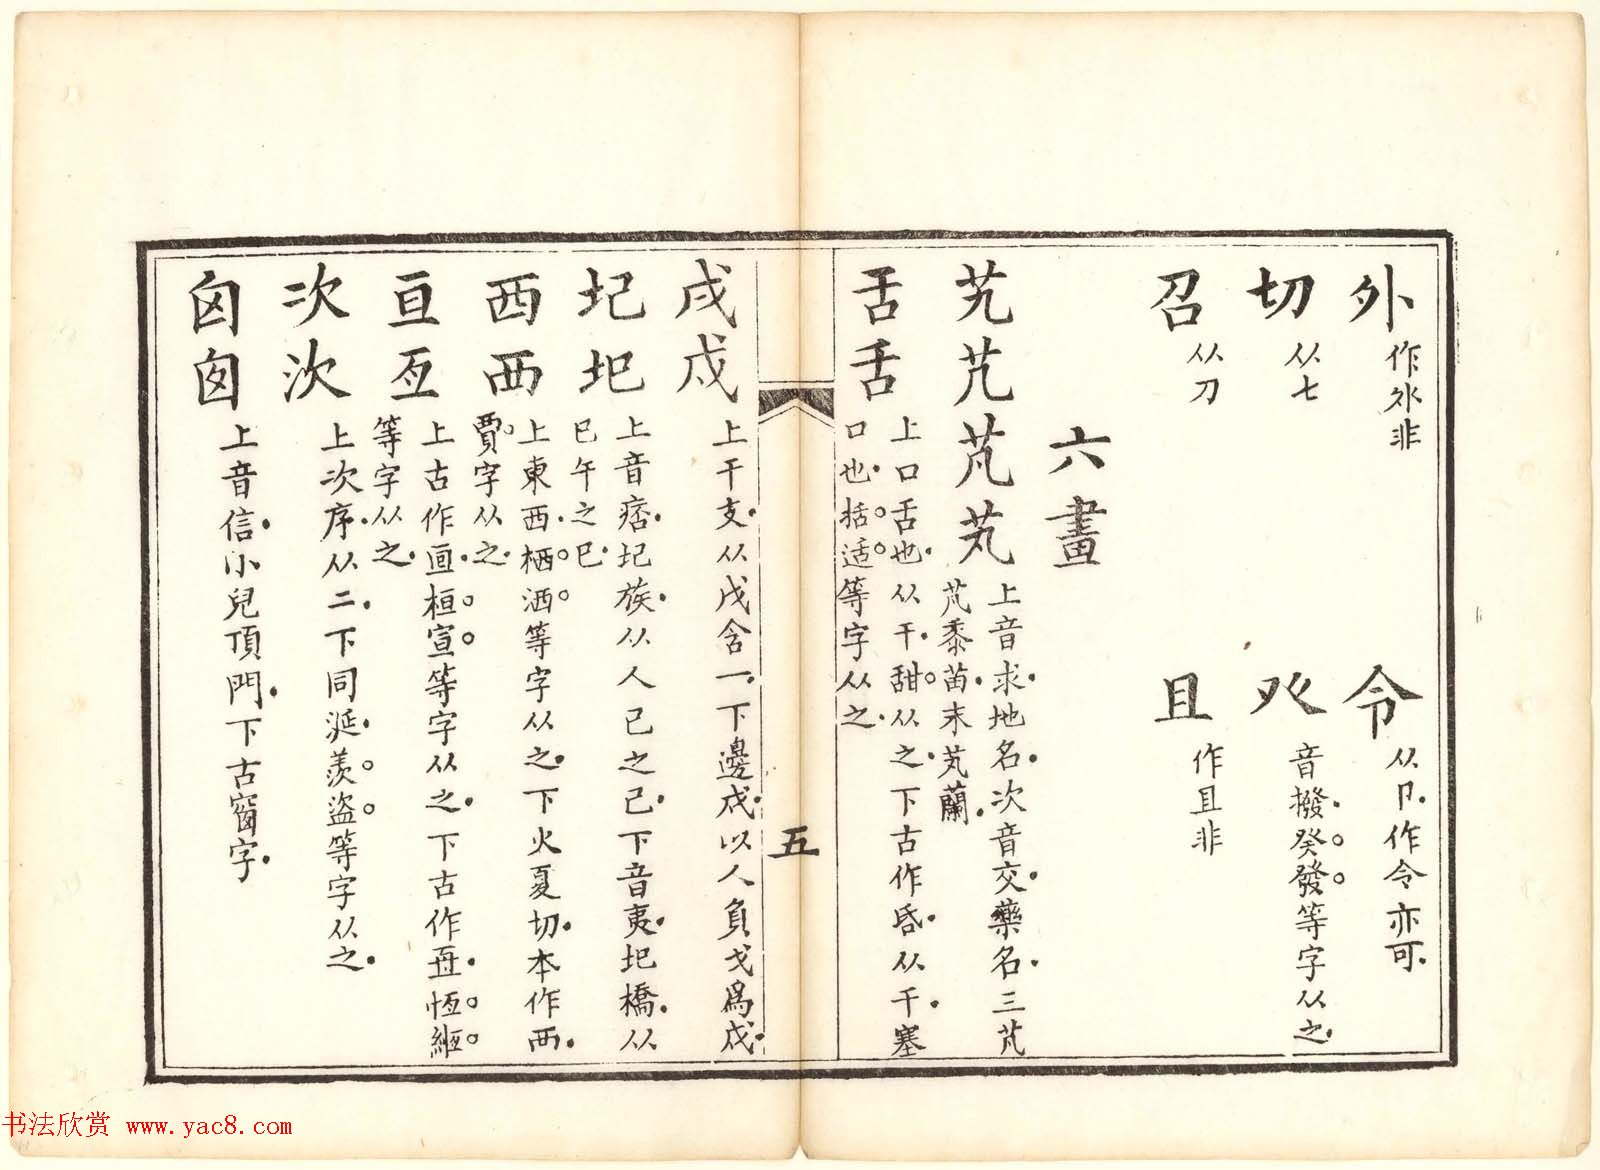 外 作外非
令 从卩作令亦可
切 从七
癶 音撥癸發等字从之
召 从刀
且 作且非
六畫
艽芃芃芄 上音求地名次音交藥名三芃
芃黍苗末芄蘭
舌舌 上口舌也从干甜从之下古作昏从千塞
口也括适等字从之
五
戌戍 上干支从戊含一下邊戍以人負戈為戍
圮圯 上音痞圮族从人己之己下音夷圯橋从
巳午之巳
西襾 上東西栖洒等字从之下火夏切本作襾
賈字从之
亘亙 上古作亘桓宣等字从之下古作亙恆緪
等字从之
次㳄 上次序从二下同涎羨盜等字从之
囟囱 上音信小兒頂門下古窗字
书法欣赏 www.yac8.com